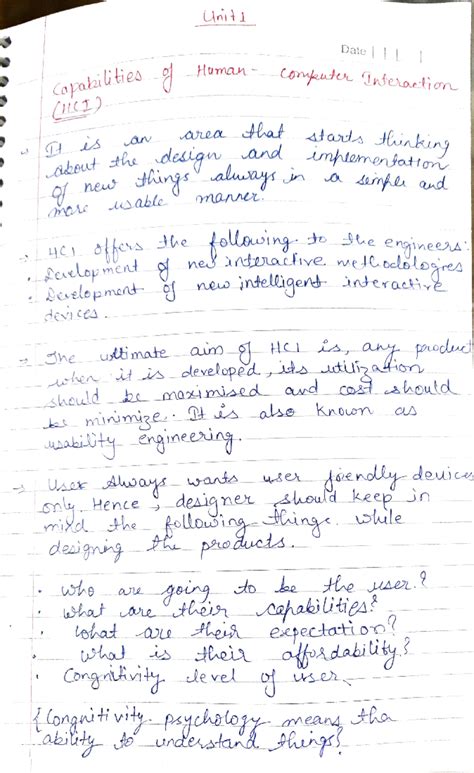 Unit 1
Date
Capabilities of Human - Computer Interaction
(HCI)
→ It is an area that starts thinking
about the design and implementation
of new things always in a simple and
more usable manner.
→ HCI offers the following to the engineers:
• Development of new interactive methodologies
• Development of new intelligent interactive
devices.
→ The ultimate aim of HCI is, any product
when it is developed, its utilization
should be maximised and cost should
be minimize. It is also known as
usability engineering.
→ User Always wants user friendly devices
only. Hence, designer should keep in
mind the following things while
designing the products.
• Who are going to be the user?
• What are their capabilities?
• What are their expectation?
• What is their affordability?
• Congnitivity level of user.
{Congnitivity psychology means the
ability to understand things}